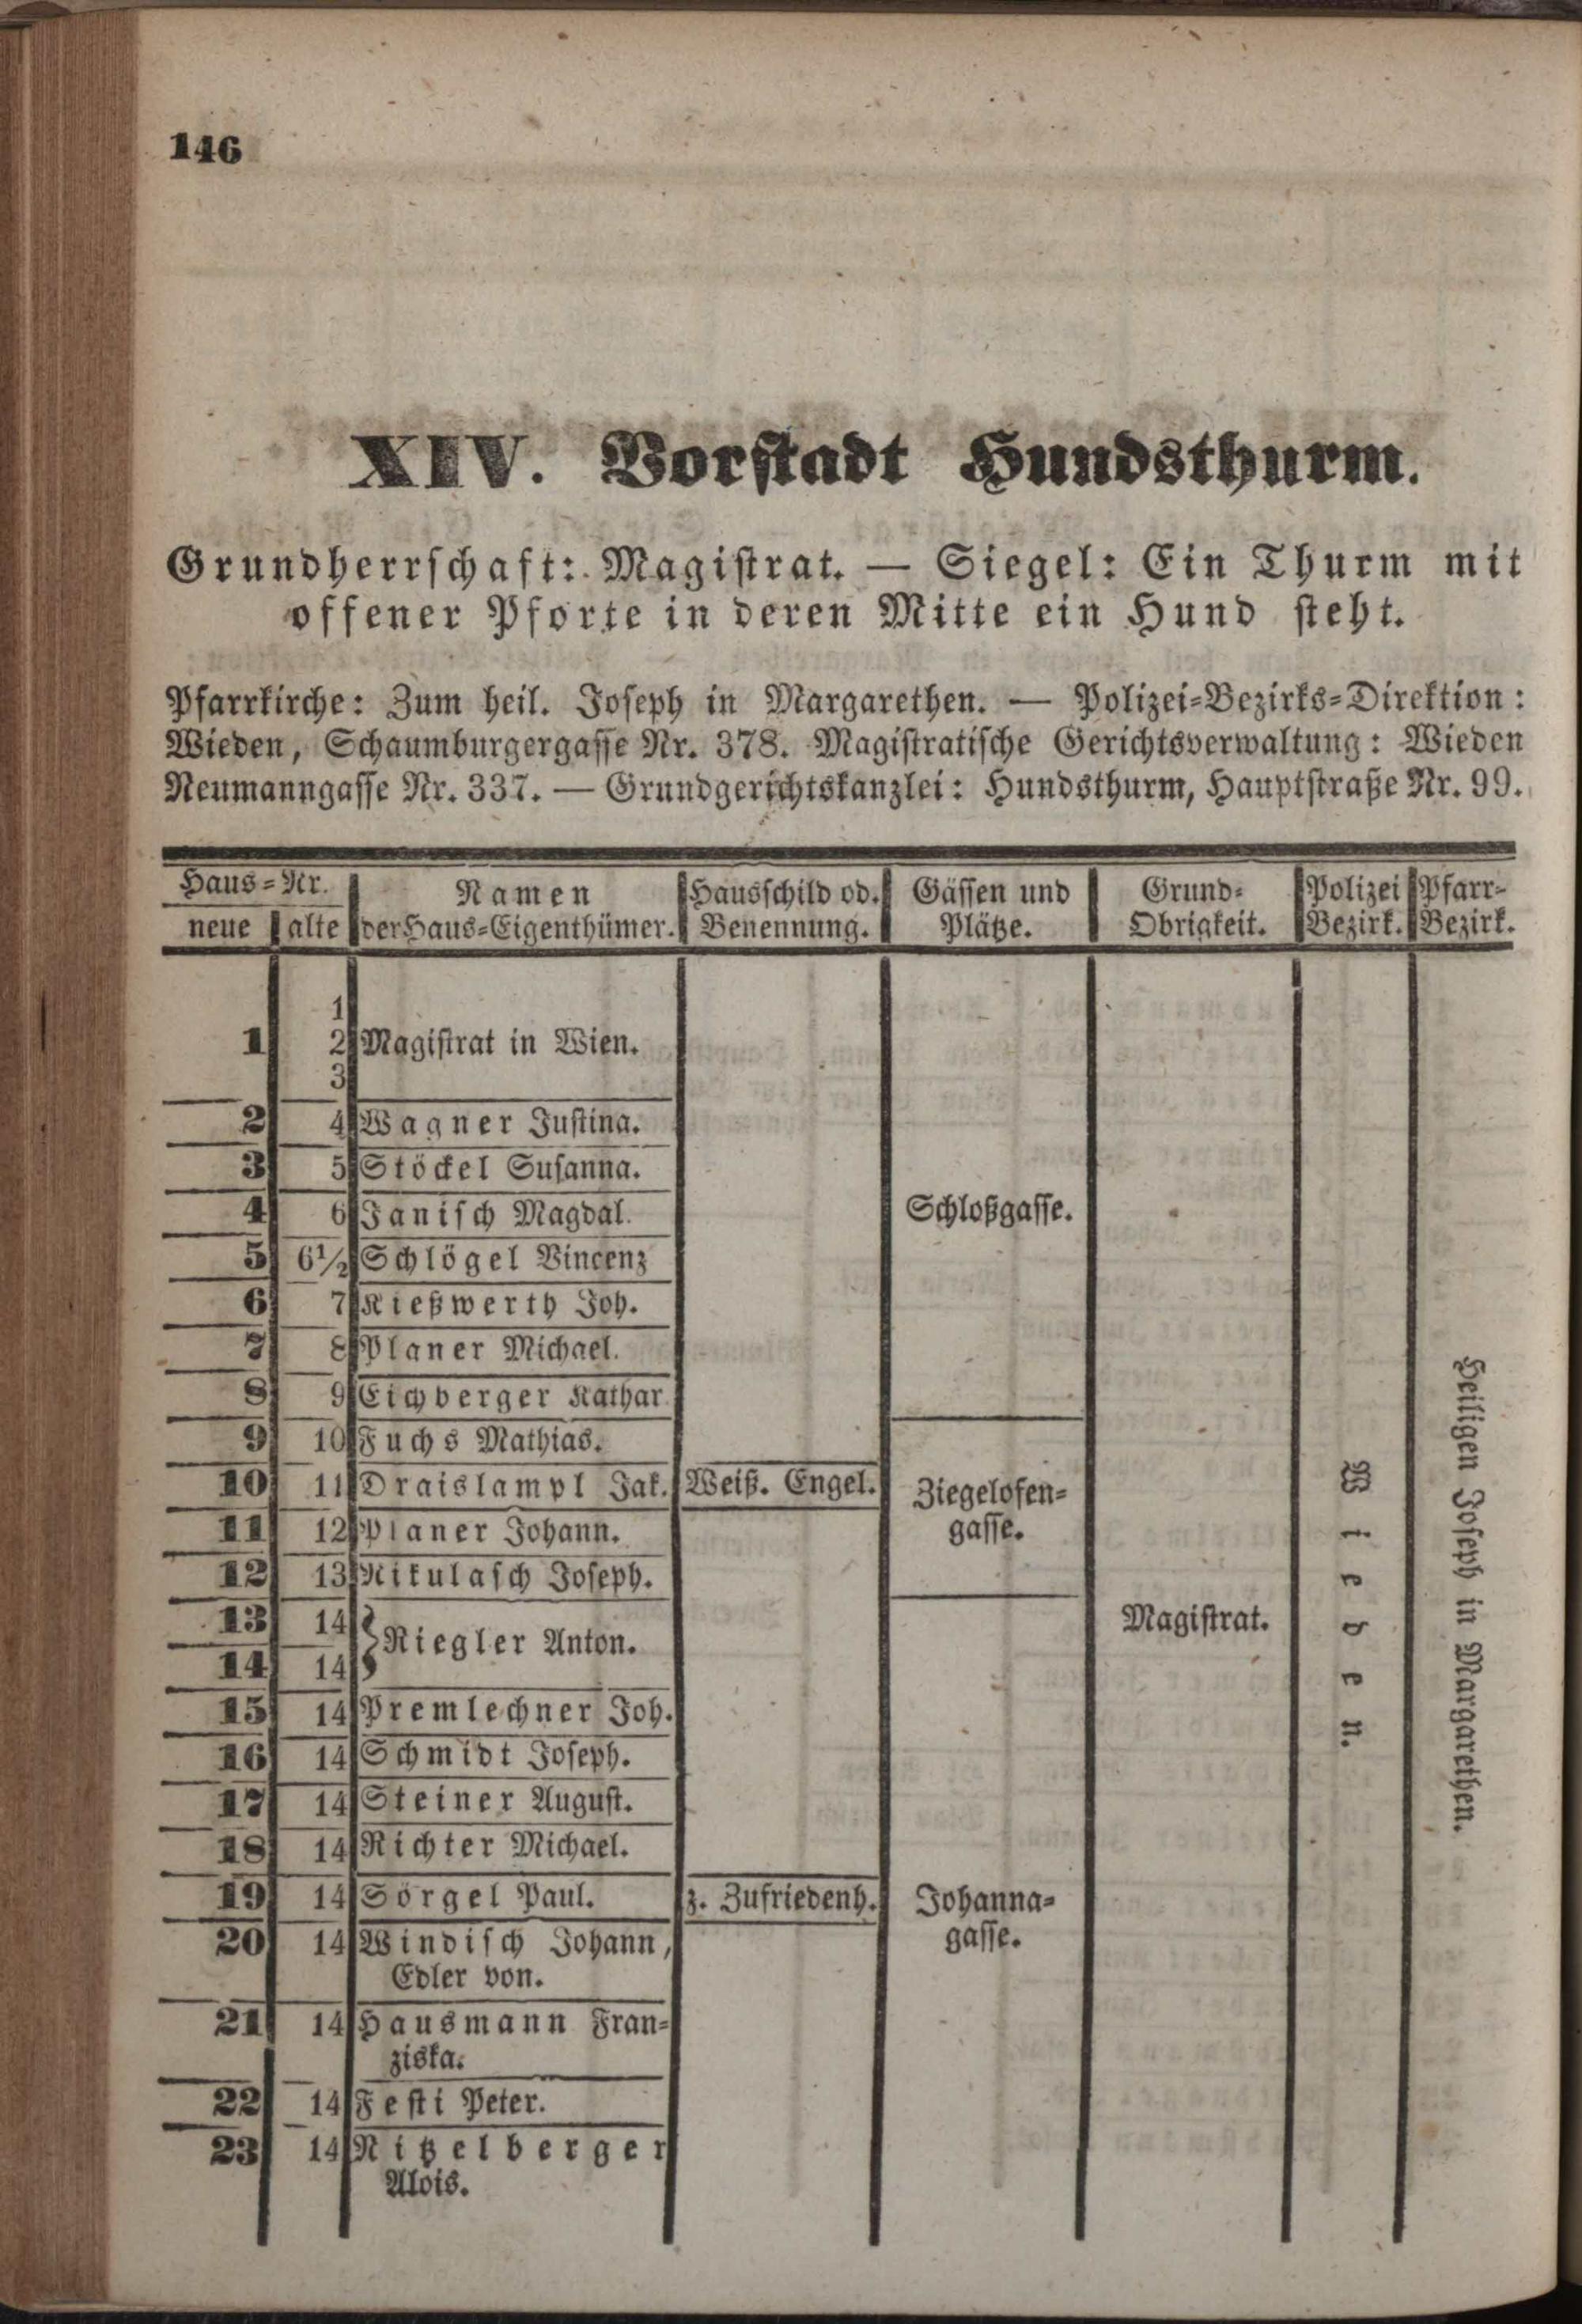 146
XIV. Vorstadt Hundsthurm.
Grundherrschaft: Magistrat. — Siegel: Ein Thurm mit
offener Pforte in deren Mitte ein Hund steht.
Pfarrkirche: Zum heil. Joseph in Margarethen. — Polizei=Bezirks=Direktion:
Wieden, Schaumburgergasse Nr. 378. Magistratische Gerichtsverwaltung: Wieden
Neumanngasse Nr. 337. — Grundgerichtskanzlei: Hundsthurm, Hauptstraße Nr. 99.
Haus=Nr. Namen Hausschild od. Gässen und Grund= Polizei Pfarr=
neue alte der Haus=Eigenthümer. Benennung. Plätze. Obrigkeit. Bezirk. Bezirk.
1
1 2 Magistrat in Wien.
3
2 4 Wagner Justina.
3 5 Stöckel Susanna.
4 6 Janisch Magdal. Schloßgasse.
5 6½ Schlögel Vincenz
6 7 Kießwerth Joh.
7 8 Planer Michael.
8 9 Eichberger Kathar
9 10 Fuchs Mathias.
10 11 Draislampl Jak. Weiß. Engel. Ziegelofen=
11 12 Planer Johann. gasse.
12 13 Nikulasch Joseph.
13 14 Riegler Anton. Magistrat.
14 14
15 14 Premlechner Joh.
16 14 Schmidt Joseph.
17 14 Steiner August.
18 14 Richter Michael.
19 14 Sörgel Paul. z. Zufriedenh. Johanna=
20 14 Windisch Johann, gasse.
Edler von.
21 14 Hausmann Fran=
ziska.
22 14 Festi Peter.
23 14 Nitzelberger
Alois.
Wieden.
Heiligen Joseph in Margarethen.